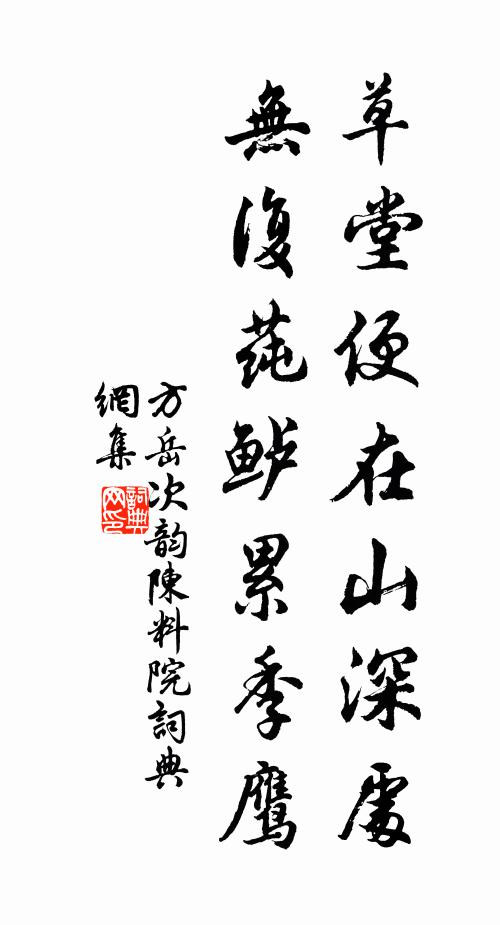 草堂便在山深處
無復莼鲈累季鹰
方岳次韵陳料院詞典
網集
詞典
网印